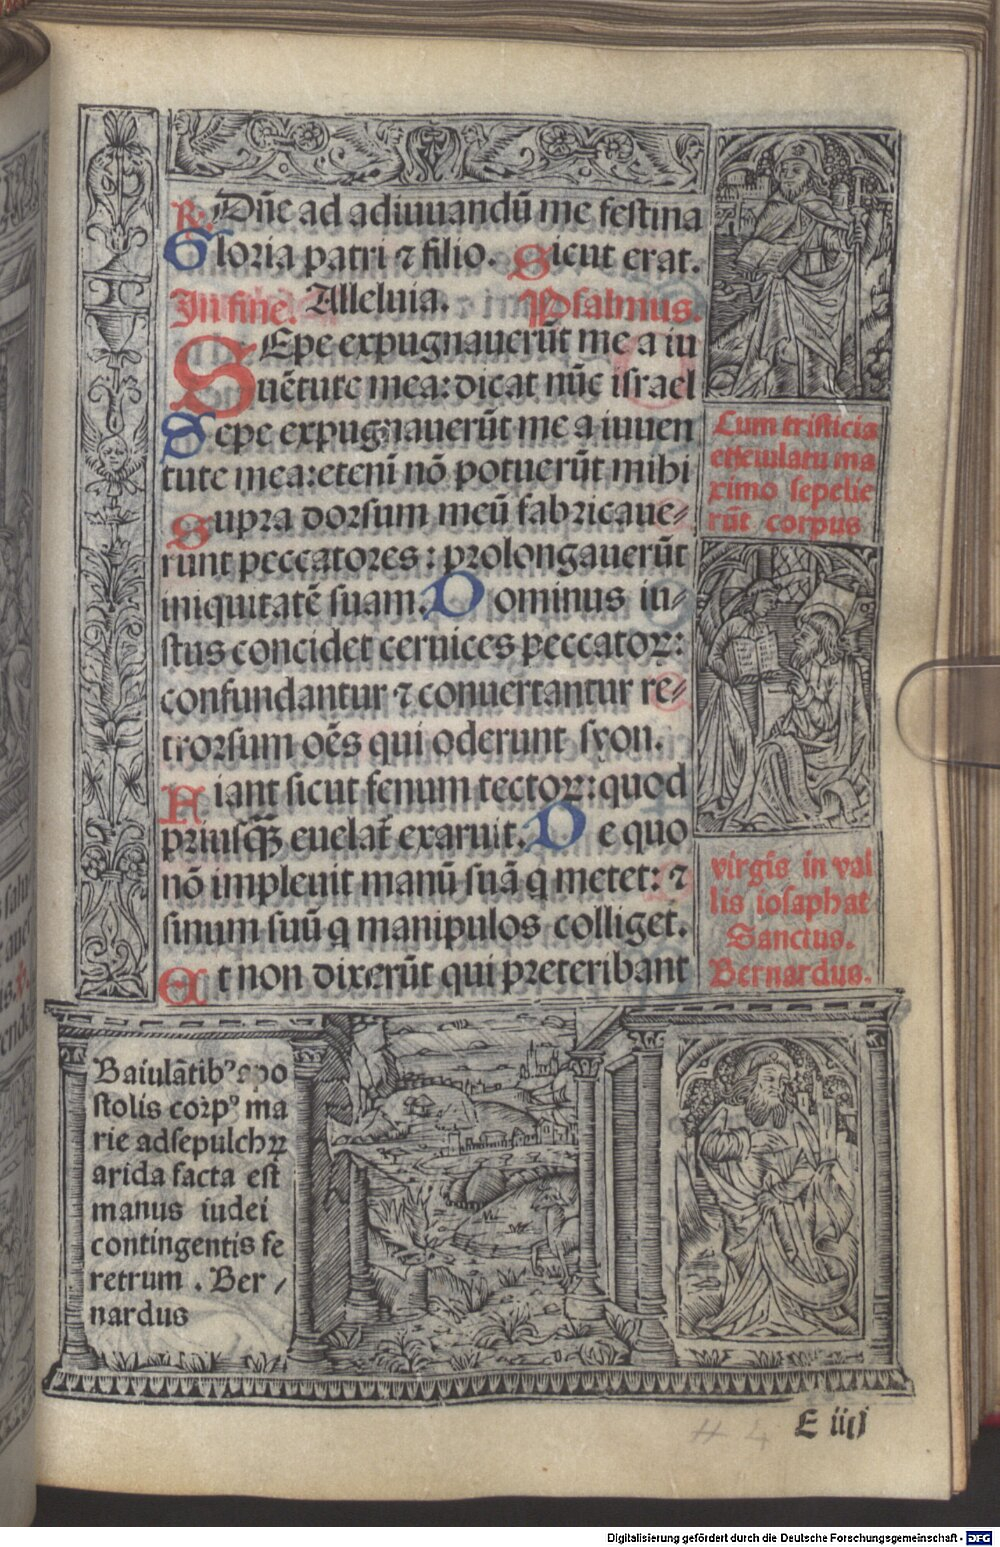 R. Dñe ad adiuuandū me festina
Gloria patri ⁊ filio. Sicut erat.
In fine. Alleluia. Psalmus.
SEpe expugnauerūt me a iu
uētute mea: dicat nūc israel
Sepe expugnauerūt me a iuuen
tute mea: eteni nō potuerūt mihi
Supra dorsum meū fabricaue⸗
runt peccatores: prolongauerūt
iniquitatē suam. Dominus iu⸗
stus concidet ceruices peccatoꝝ:
confundantur ⁊ conuertantur re⸗
trorsum oēs qui oderunt syon.
Fiant sicut fenum tectoꝝ: quod
priusqꝫ euelat̄ exaruit. De quo
nō impleuit manū suā q metet: ⁊
sinum suū q manipulos colliget.
Et non dixerūt qui preteribant
Cum tristicia
et eiulatu ma
ximo sepelie
rūt corpus
virgīs in val
lis iosaphat
Sanctus.
Bernardus.
Baiulātibꝰ apo
stolis corpꝰ ma
rie ad sepulchꝝ
arida facta est
manus iudei
contingentis fe
retrum. Ber /
nardus
E iiij
# 4
Digitalisierung gefördert durch die Deutsche Forschungsgemeinschaft - DFG